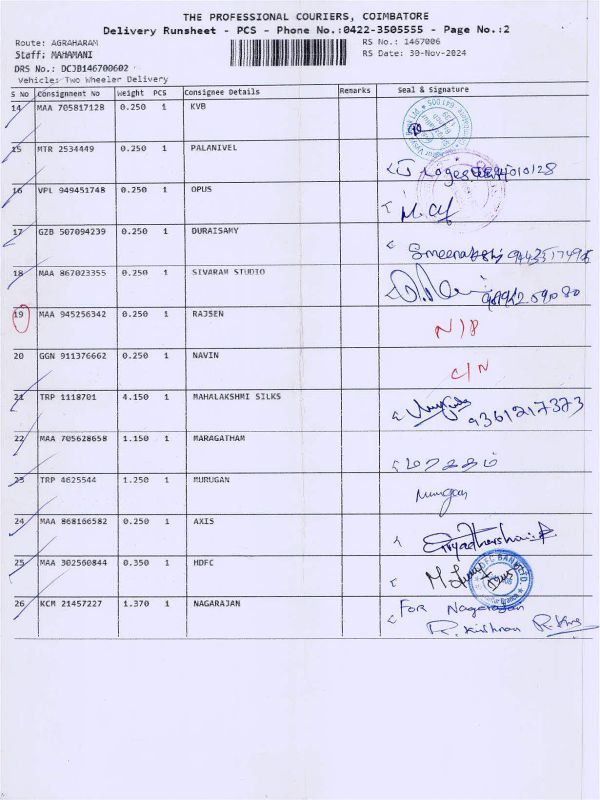 THE PROFESSIONAL COURIERS, COIMBATORE
Delivery Runsheet - PCS - Phone No.:0422-3505555 - Page No.:2
Route: AGRAHARAM
RS No.: 1467006
Staff: MAHAMANI
RS Date: 30-Nov-2024
DRS No.: DCJB146700602
Vehicle: Two Wheeler Delivery
S No Consignment No Weight PCS Consignee Details Remarks Seal & Signature
14 MAA 705817128 0.250 1 KVB
15 MTR 2534449 0.250 1 PALANIVEL
16 VPL 949451748 0.250 1 OPUS
17 GZB 507094239 0.250 1 DURAISAMY
18 MAA 867023355 0.250 1 SIVARAM STUDIO
19 MAA 945256342 0.250 1 RAJSEN N/B
20 GGN 911376662 0.250 1 NAVIN C/N
21 TRP 1118701 4.150 1 MAHALAKSHMI SILKS 9361217373
22 MAA 705628658 1.150 1 MARAGATHAM மரகதம்
23 TRP 4625544 1.250 1 MURUGAN Murugan
24 MAA 868166582 0.250 1 AXIS
25 MAA 302560844 0.350 1 HDFC HDFC BANK LTD.
26 KCM 21457227 1.370 1 NAGARAJAN For Nagarajan
R. Krishnan